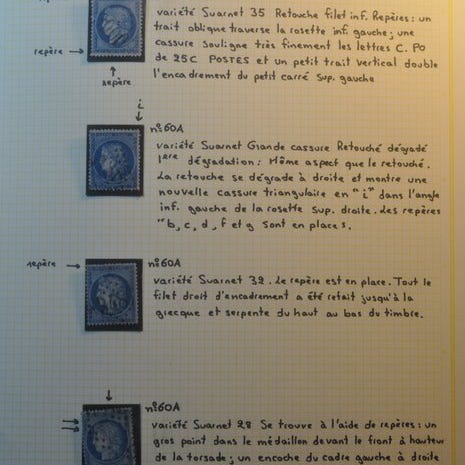 variété Suarnet 35 Retouche filet inf. Repères: un
trait oblique traverse la rosette inf. gauche; une
cassure souligne très finement les lettres C. PO
de 25C POSTES et un petit trait vertical double
l'encadrement du petit carré sup. gauche
repère
repère
i
n°60A
variété Suarnet Grande cassure Retouché dégradé
1ère dégradation: Même aspect que le retouché.
La retouche se dégrade à droite et montre une
nouvelle cassure triangulaire en "i" dans l'angle
inf. gauche de la rosette sup. droite. Les repères
"b, c, d, f et g sont en places.
repère
n°60A
variété Suarnet 32. Le repère est en place. Tout le
filet droit d'encadrement a été refait jusqu'à la
grecque et serpente du haut au bas du timbre.
n°60A
variété Suarnet 28 Se trouve à l'aide de repères: un
gros point dans le médaillon devant le front à hauteur
de la torsade; un encoche du cadre gauche à droite